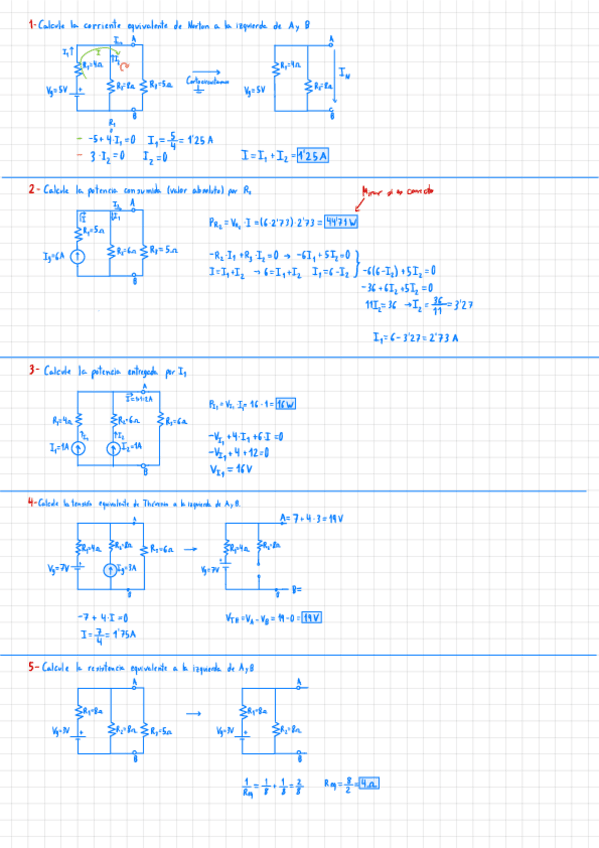 1- Calcule la corriente equivalente de Norton a la izquierda de A y B
I₁↑ I I₂ A
R₁=4Ω
Vg=5V R₂=8Ω R₃=5Ω
B
Cortocircuitamos
A
R₁=4Ω
Vg=5V R₂=8Ω
I_N
B
R₁
- -5+4·I₁=0 I₁=5/4=1'25A
- 3·I₂=0 I₂=0
I=I₁+I₂=1'25A
2- Calcule la potencia consumida (valor absoluto) por R₂
Mirar si es correcto
A
R₁=5Ω
Ig=6A R₂=6Ω R₃=5Ω
B
P_R₂=V_R₂·I=(6·2'73)·2'73=44'71W
-R₂·I₁+R₃·I₂=0 → -6I₁+5I₂=0
I=I₁+I₂ → 6=I₁+I₂ I₁=6-I₂
-6(6-I₂)+5I₂=0
-36+6I₂+5I₂=0
11I₂=36 → I₂=36/11=3'27
I₁=6-3'27=2'73A
3- Calcule la potencia entregada por I₁
A
I=1+1=2A
R₁=4Ω R₂=6Ω R₃=6Ω
I₁=1A I₂=1A
B
P_I₁=V_I₁·I₁=16·1=16W
-V_I₁+4·I₁+6·I=0
-V_I₁+4+12=0
V_I₁=16V
4- Calcule la tensión equivalente de Thévenin a la izquierda de A y B.
A
R₁=4Ω R₂=8Ω R₃=6Ω
Vg=7V Ig=3A
B
A=7+4·3=19V
R₁=4Ω R₂=8Ω
Vg=7V
B=
-7+4·I=0
I=7/4=1'75A
V_TH=V_A-V_B=19-0=19V
5- Calcule la resistencia equivalente a la izquierda de A y B
A
R₁=8Ω
Vg=3V R₂=8Ω R₃=5Ω
B
A
R₁=8Ω
Vg=3V R₂=8Ω
B
1/Req=1/8+1/8=2/8 Req=8/2=4Ω